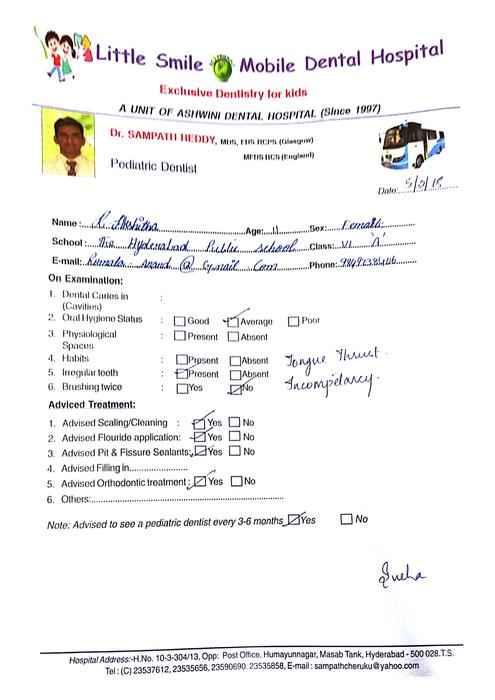 Little Smile Mobile Dental Hospital
Exclusive Dentistry for kids
A UNIT OF ASHWINI DENTAL HOSPITAL (Since 1997)
Dr. SAMPATH REDDY, MDS, FDS RCPS (Glasgow)
MFDS RCS (England)
Pediatric Dentist
Date: 5/2/15
Name: K. Akshitha Age: 11 Sex: Female
School: The Hyderabad Public School Class: VI 'A'
E-mail: @ Gymail Com Phone:
On Examination:
1. Dental Caries in (Cavities) :
2. Oral Hygiene Status : Good Average Poor
3. Physiological Spaces : Present Absent
4. Habits : Present Absent Tongue Thrust
5. Irregular teeth : Present Absent Incompetancy.
6. Brushing twice : Yes No
Adviced Treatment:
1. Advised Scaling/Cleaning : Yes No
2. Advised Flouride application: Yes No
3. Advised Pit & Fissure Sealants: Yes No
4. Advised Filling in......................
5. Advised Orthodontic treatment : Yes No
6. Others:..........................................................
Note: Advised to see a pediatric dentist every 3-6 months Yes No
Sneha
Hospital Address:-H.No. 10-3-304/13, Opp: Post Office, Humayunnagar, Masab Tank, Hyderabad - 500 028.T.S.
Tel : (C) 23537612, 23535656, 23590690, 23535858, E-mail : sampathcheruku@yahoo.com